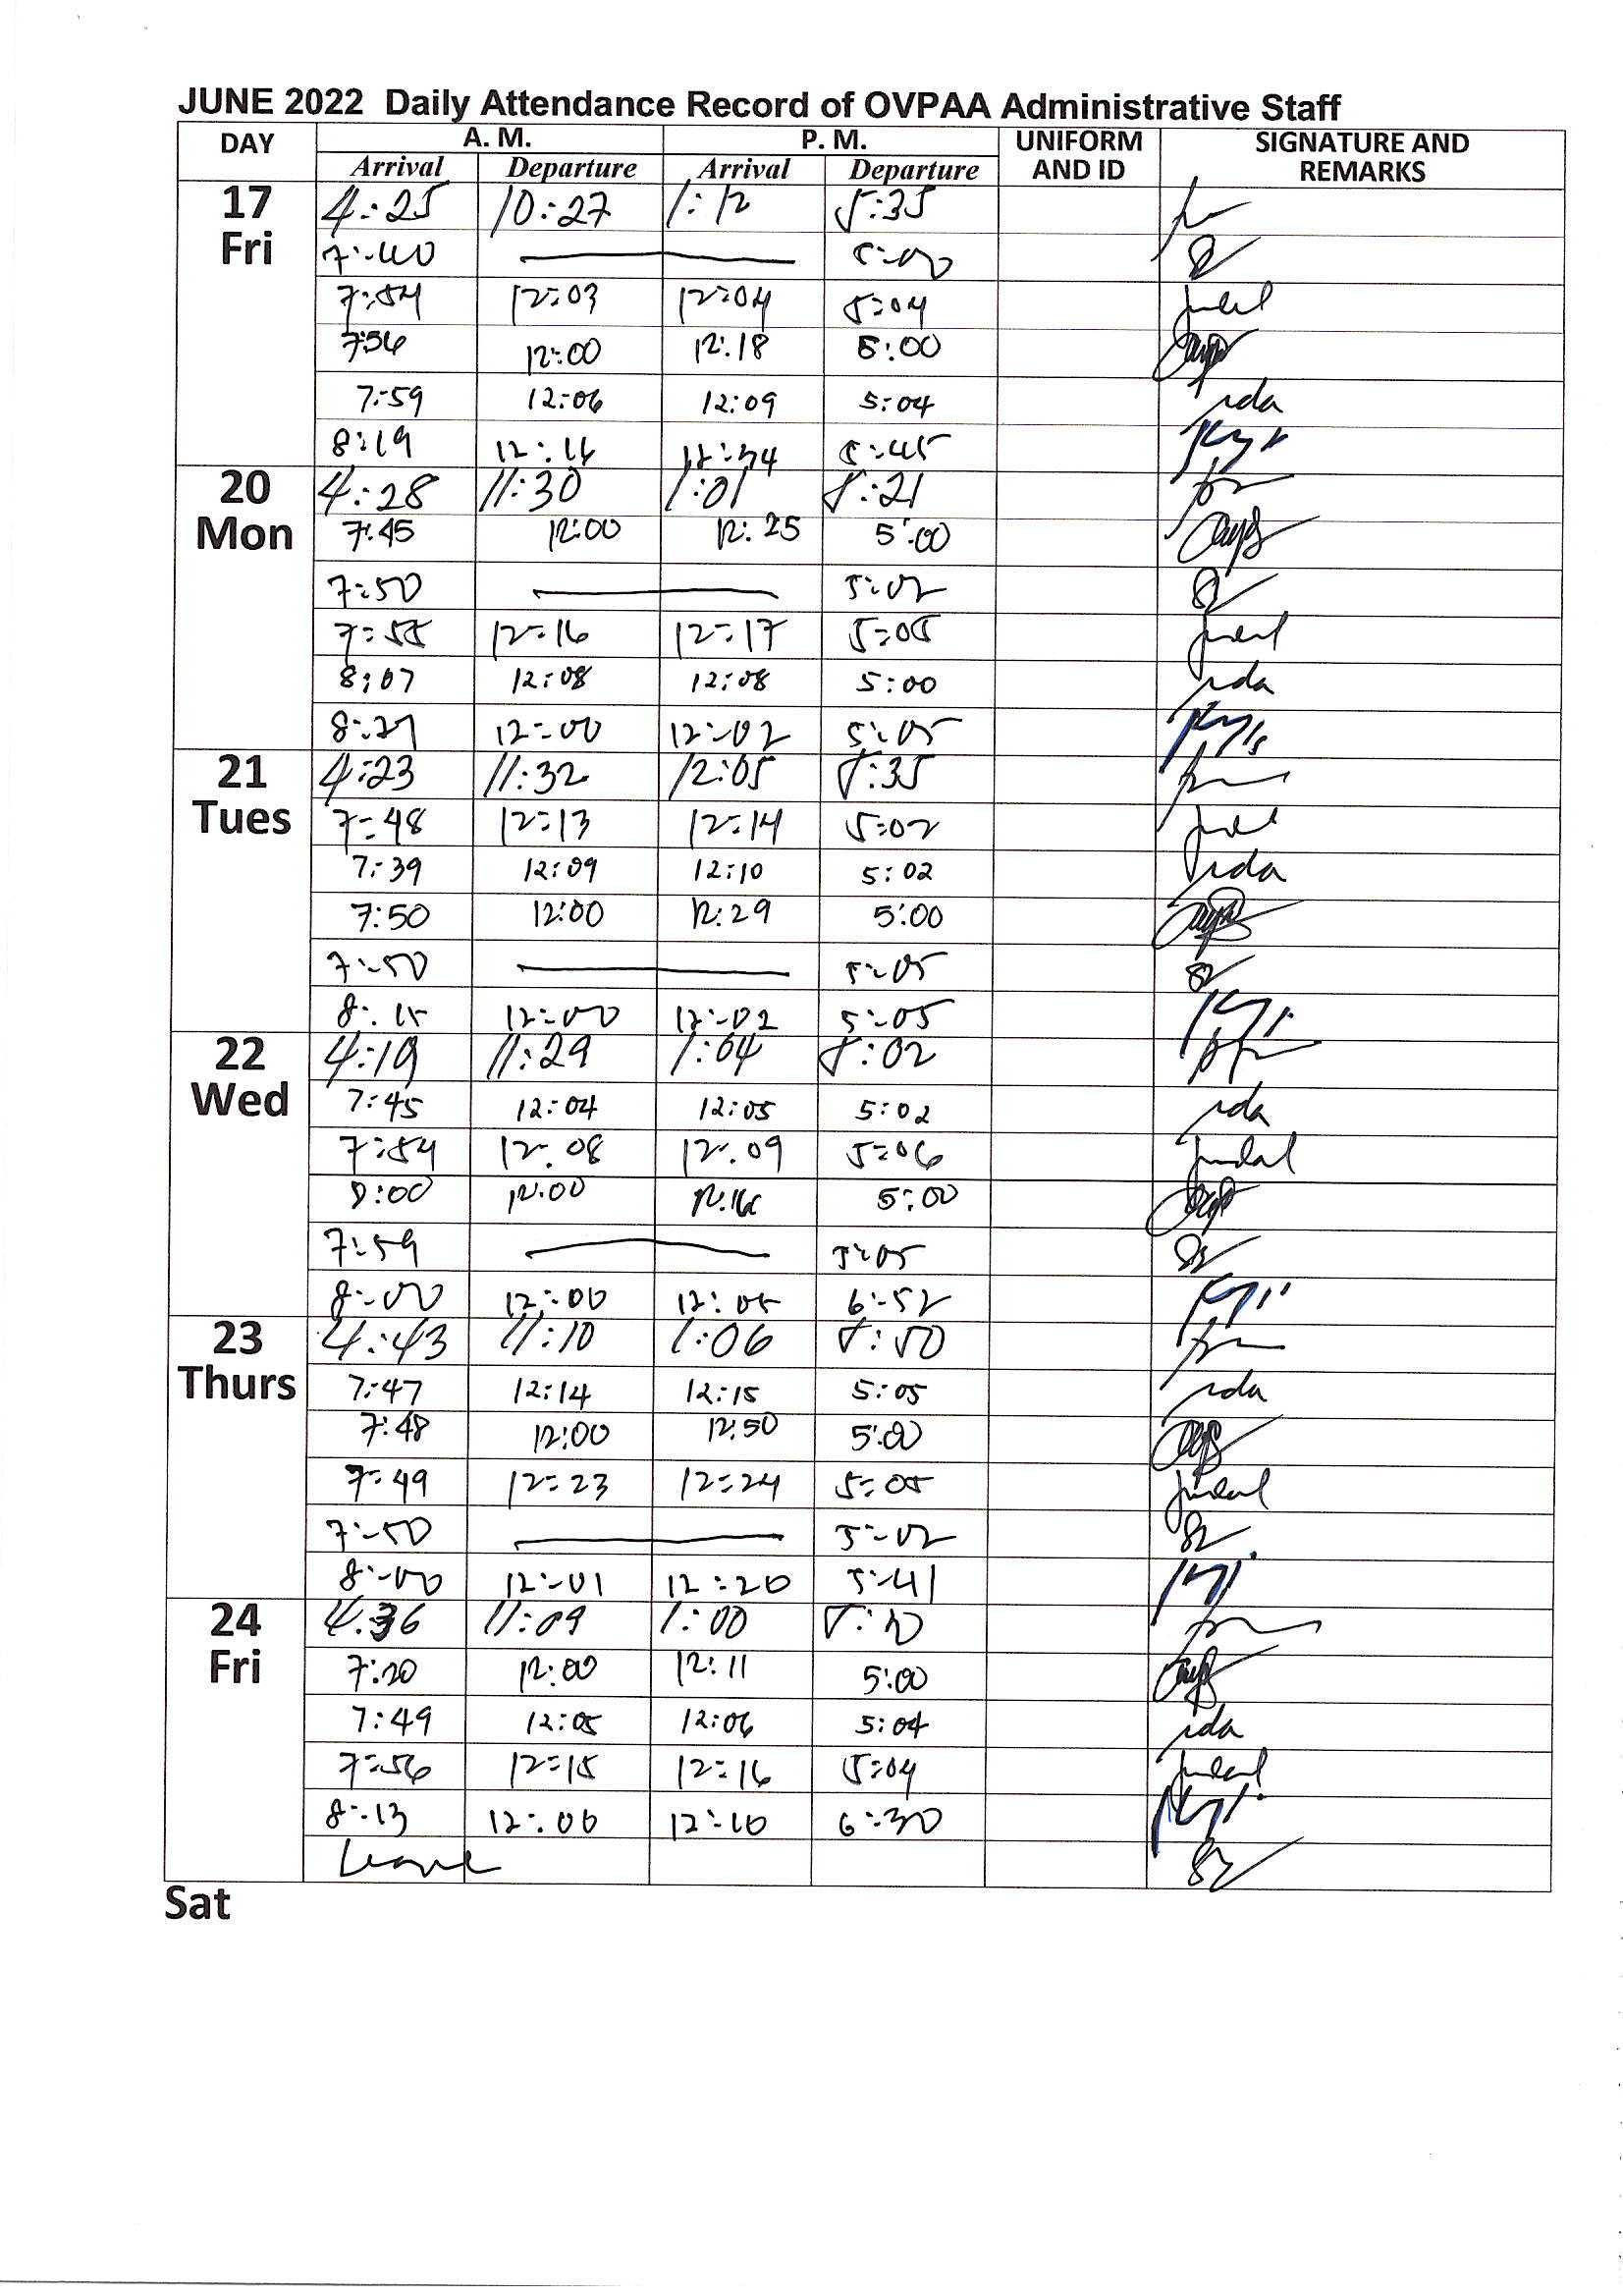 JUNE 2022 Daily Attendance Record of OVPAA Administrative Staff
DAY A. M. P. M. UNIFORM AND ID SIGNATURE AND REMARKS
Arrival Departure Arrival Departure
17 Fri
4:25 10:27 1:12 5:35
7:40 5:00
7:54 12:03 12:04 5:04
7:56 12:00 12:18 5:00
7:59 12:06 12:09 5:04 rda
8:19 12:16 12:34 5:45
20 Mon
4:28 11:30 1:01 5:21
7:45 12:00 12:25 5:00
7:50 5:02
7:55 12:16 12:17 5:05
8:07 12:08 12:08 5:00 rda
8:27 12:00 12:02 5:05
21 Tues
4:23 11:32 12:05 5:35
7:48 12:13 12:14 5:02
7:39 12:09 12:10 5:02 rda
7:50 12:00 12:29 5:00
7:50 5:05
8:15 12:00 12:02 5:05
22 Wed
4:19 11:29 1:04 5:02
7:45 12:04 12:05 5:02 rda
7:54 12:08 12:09 5:06
8:00 12:00 12:16 5:00
7:59 5:05
8:00 12:00 12:05 6:52
23 Thurs
4:43 11:10 1:06 5:50
7:47 12:14 12:15 5:05 rda
7:48 12:00 12:50 5:00
7:49 12:23 12:24 5:05
7:50 5:02
8:00 12:01 12:20 5:41
24 Fri
4:36 11:09 1:00
7:20 12:00 12:11 5:00
7:49 12:05 12:06 5:04 rda
7:56 12:15 12:16 5:04
8:13 12:06 12:10 6:30
Leave
Sat